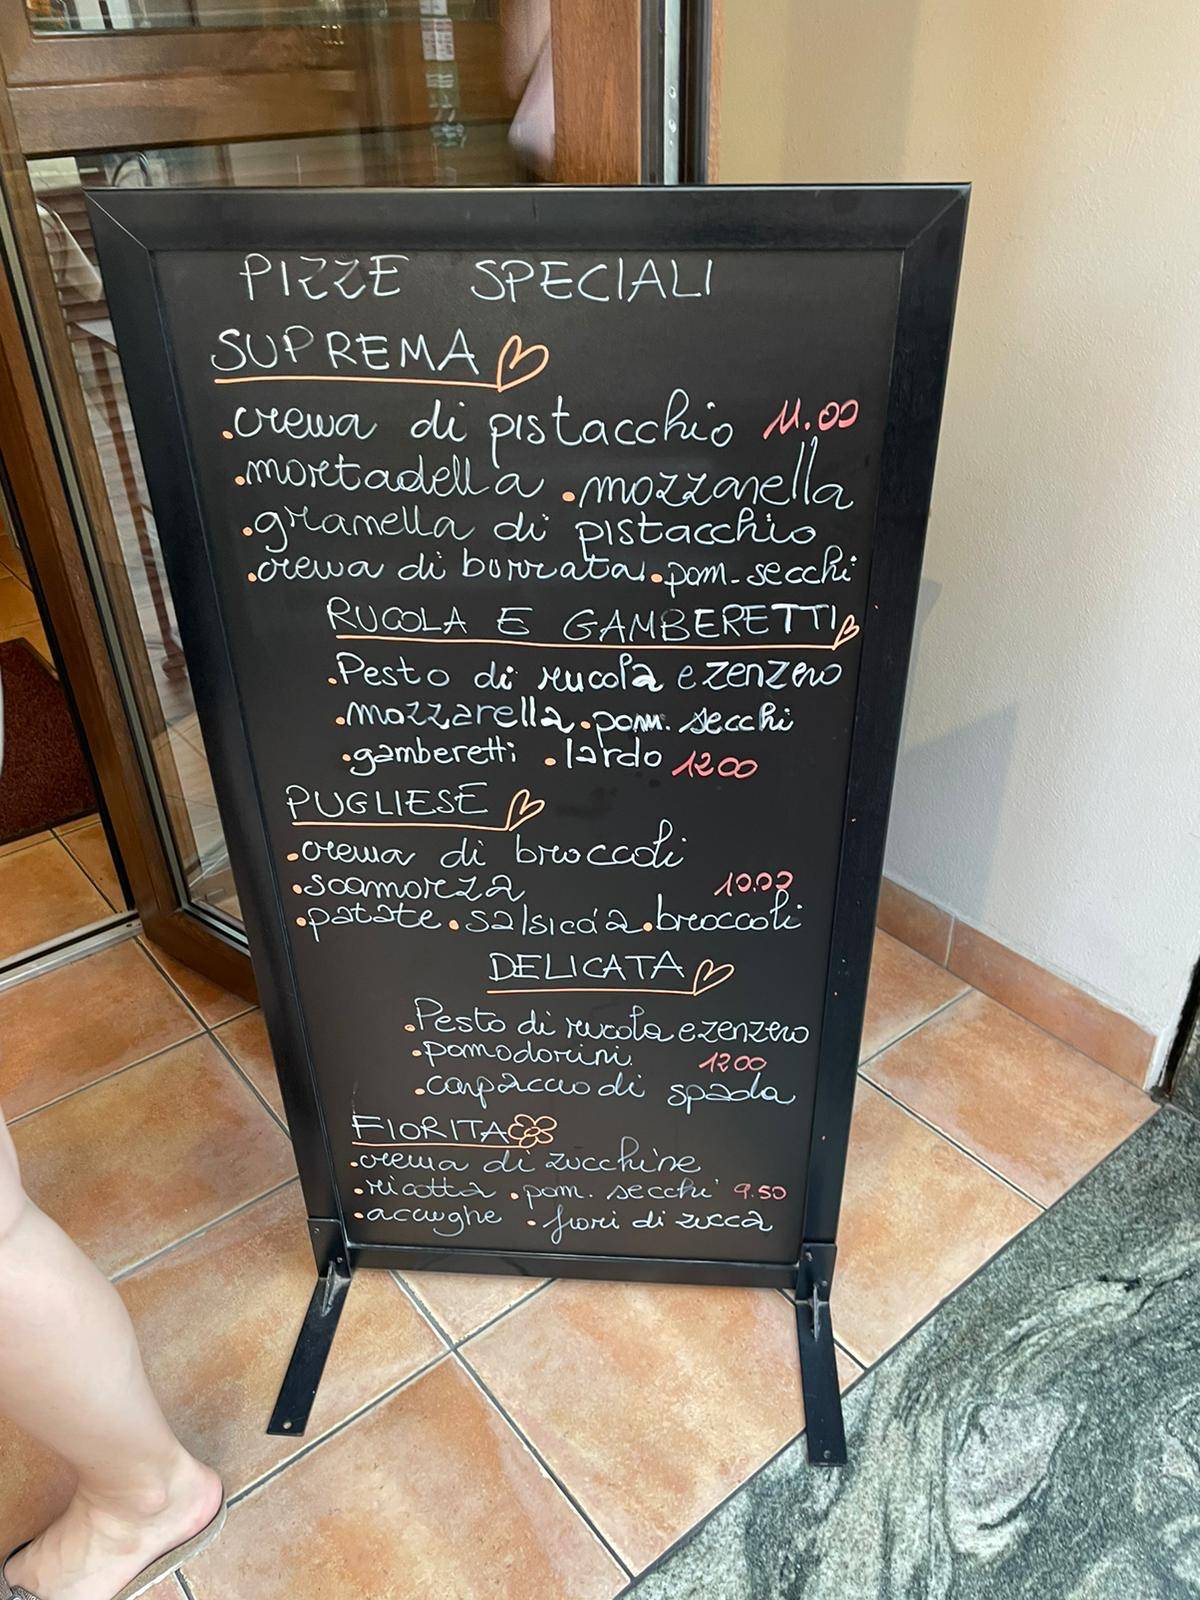 PIZZE SPECIALI
SUPREMA
.crema di pistacchio 11.00
.mortadella .mozzarella
.granella di pistacchio
.crema di burrata .pom. secchi
RUCOLA E GAMBERETTI
.Pesto di rucola e zenzero
.mozzarella .pom. secchi
.gamberetti .lardo 12 00
PUGLIESE
.crema di broccoli
.scamorza 10.00
.patate .salsiccia .broccoli
DELICATA
.Pesto di rucola e zenzero
.pomodorini 12 00
.carpaccio di spada
FIORITA
.crema di zucchine
.ricotta .pom. secchi 9.50
.acciughe .fiori di zucca